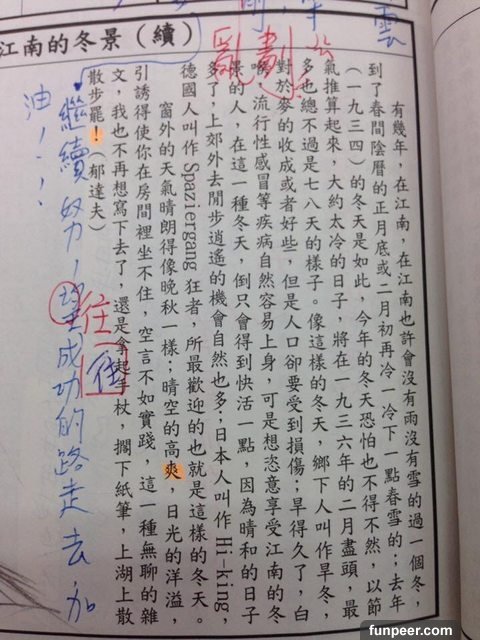 雲
劃
江南的冬景（續）
有幾年，在江南，在江南也許會沒有雨沒有雪的過一個冬，
到了春間陰曆的正月底或二月初再冷一冷下一點春雪的；去年
（一九三四）的冬天是如此，今年的冬天恐怕也不得不然，以節
氣推算起來，大約太冷的日子，將在一九三六年的二月盡頭，最
多也總不過是七八天的樣子。像這樣的冬天，鄉下人叫作旱冬，
對於麥的收成或者好些，但是人口卻要受到損傷；旱得久了，白
喉，流行性感冒等疾病自然容易上身，可是想恣意享受江南的冬
景的人，在這一種冬天，倒只會得到快活一點，因為晴和的日子
多了，上郊外去閒步逍遙的機會自然也多；日本人叫作 Hi-king，
德國人叫作 Spaziergang 狂者，所最歡迎的也就是這樣的冬天。
窗外的天氣晴朗得像晚秋一樣；晴空的高爽，日光的洋溢，
引誘得使你在房間裡坐不住，空言不如實踐，這一種無聊的雜
文，我也不再想寫下去了，還是拿起手杖，擱下紙筆，上湖上散
散步罷！（郁達夫）
往
往
繼續努力，成功的路走去加
油！！！
funpeer.com